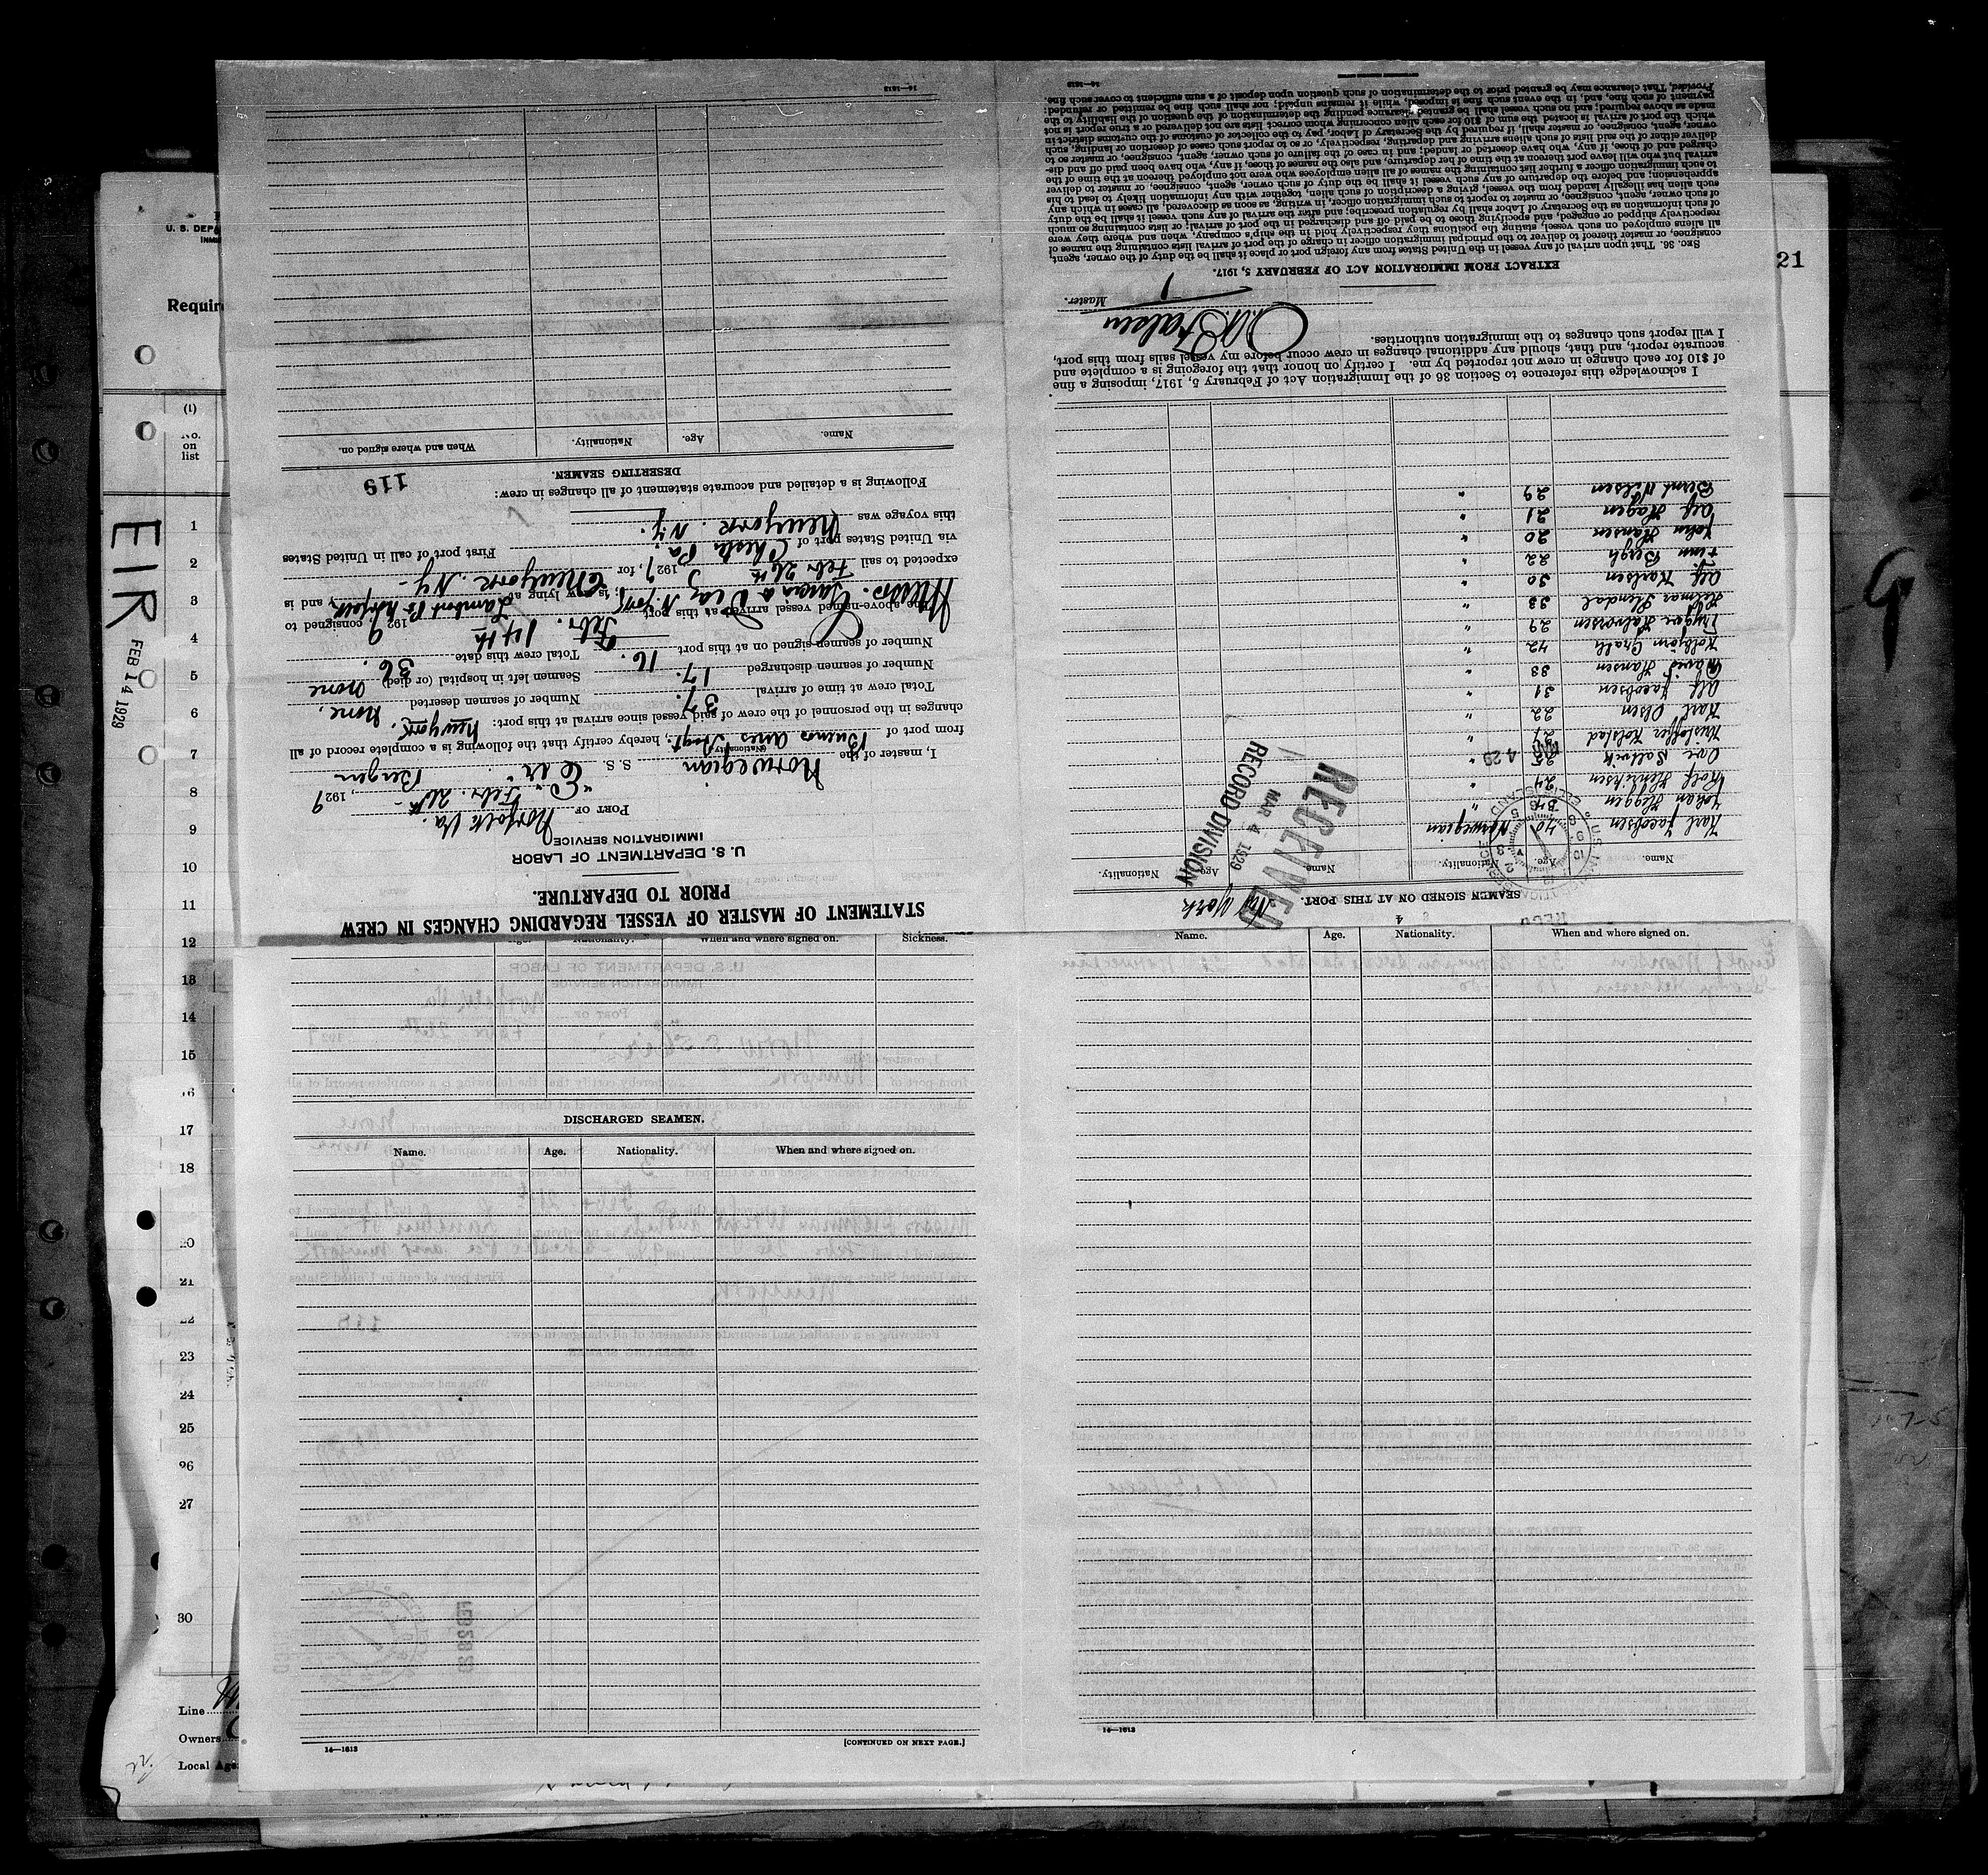 STATEMENT OF MASTER OF VESSEL REGARDING CHANGES IN CREW
PRIOR TO DEPARTURE.
U. S. DEPARTMENT OF LABOR
IMMIGRATION SERVICE
PORT OF Norfolk Va.
Febr. 26th - , 1929
I, master of the Norwegian S. S. "Eir" Bergen
(Nationality)
from port of Buenos Aires Argt., hereby certify that the following is a complete record of all
changes in the personnel of the crew of said vessel since arrival at this port: Newyork.
Total crew at time of arrival 37. Number of seamen deserted None.
Number of seamen discharged 17. Seamen left in hospital (or died) None
Number of seamen signed on at this port 16. Total crew this date 36.
The above-named vessel arrived at this port Febr. 14th 1929 consigned to
Messrs. Garcia & Diaz N. York; is now lying at Lambert Pt Norfolk and is
expected to sail Febr 26th, 1929, for Newyork. Ny-
via United States port of Chester Pa. First port of call in United States
this voyage was Newyork. Ny.
Following is a detailed and accurate statement of all changes in crew:
119
DESERTING SEAMEN.
Name. Age. Nationality. When and where signed on.
14—1613
SEAMEN SIGNED ON AT THIS PORT. New York
Name. Age. Nationality. Name. Age. Nationality.
Karl Jacobsen 40 Norwegian
Johan Heggen "
Rolf Henriksen 24 "
Ove Solvik 25 "
Kristoffer Kolstad 27 "
Karl Olsen 22 "
Alf Jacobsen 31 "
David Hansen 33 "
Kolbjörn Gralli 42 "
Trygve Halvorsen 29 "
Helmar Stendal 33 "
Alf Karlsen 30 "
Finn Bergh 22 "
John Hansen 20 "
Alf Hagen 21 "
Bernt Nilsen 29 "
RECEIVED
MAR 4 1929
RECORD DIVISION
I acknowledge this reference to Section 36 of the Immigration Act of February 5, 1917, imposing a fine
of $10 for each change in crew not reported by me. I certify on honor that the foregoing is a complete and
accurate report, and that, should any additional changes in crew occur before my vessel sails from this port,
I will report such changes to the immigration authorities.
Master.
EXTRACT FROM IMMIGRATION ACT OF FEBRUARY 5, 1917.
SEC. 36. That upon arrival of any vessel in the United States from any foreign port or place it shall be the duty of the owner, agent,
consignee, or master thereof to deliver to the principal immigration officer in charge of the port of arrival lists containing the names of
all aliens employed on such vessel, stating the positions they respectively hold in the ship's company, when and where they were
respectively shipped or engaged, and specifying those to be paid off and discharged in the port of arrival; or lists containing so much
of such information as the Secretary of Labor shall by regulation prescribe; and after the arrival of any such vessel it shall be the duty
of such owner, agent, consignee, or master to report to such immigration officer, in writing, as soon as discovered, all cases in which any
such alien has illegally landed from the vessel, giving a description of such alien, together with any information likely to lead to his
apprehension; and before the departure of any such vessel it shall be the duty of such owner, agent, consignee, or master to deliver
to such immigration officer a further list containing the names of all alien employees who were not employed thereon at the time of the
arrival but who will leave port thereon at the time of her departure, and also the names of those, if any, who have been paid off and dis-
charged and of those, if any, who have deserted or landed; and in case of the failure of such owner, agent, consignee, or master so to
deliver either of the said lists of such aliens arriving and departing, respectively, or so to report such cases of desertion or landing, such
owner, agent, consignee, or master, shall, if required by the Secretary of Labor, pay to the collector of customs of the customs district in
which the port of arrival is located the sum of $10 for each alien concerning whom correct lists are not delivered or a true report is not
made as above required; and no such vessel shall be granted clearance pending the determination of the question of the liability to the
payment of such fine, and, in the event such fine is imposed, while it remains unpaid; nor shall such fine be remitted or refunded:
Provided, That clearance may be granted prior to the determination of such question upon deposit of a sum sufficient to cover such fine.
14—1613
Nationality. When and where signed on. Sickness.
DISCHARGED SEAMEN.
Name. Age. Nationality. When and where signed on.
14—1613
[CONTINUED ON NEXT PAGE.]
Name. Age. Nationality. When and where signed on.
14—1613
U. S. DEPA
Requir
(1)
No.
on
list
1
2
3
4
5
6
7
8
9
10
11
12
13
14
15
16
17
18
20
21
22
23
24
25
26
27
30
Line
Owners
Local Age
EIR
FEB 14 1929
21